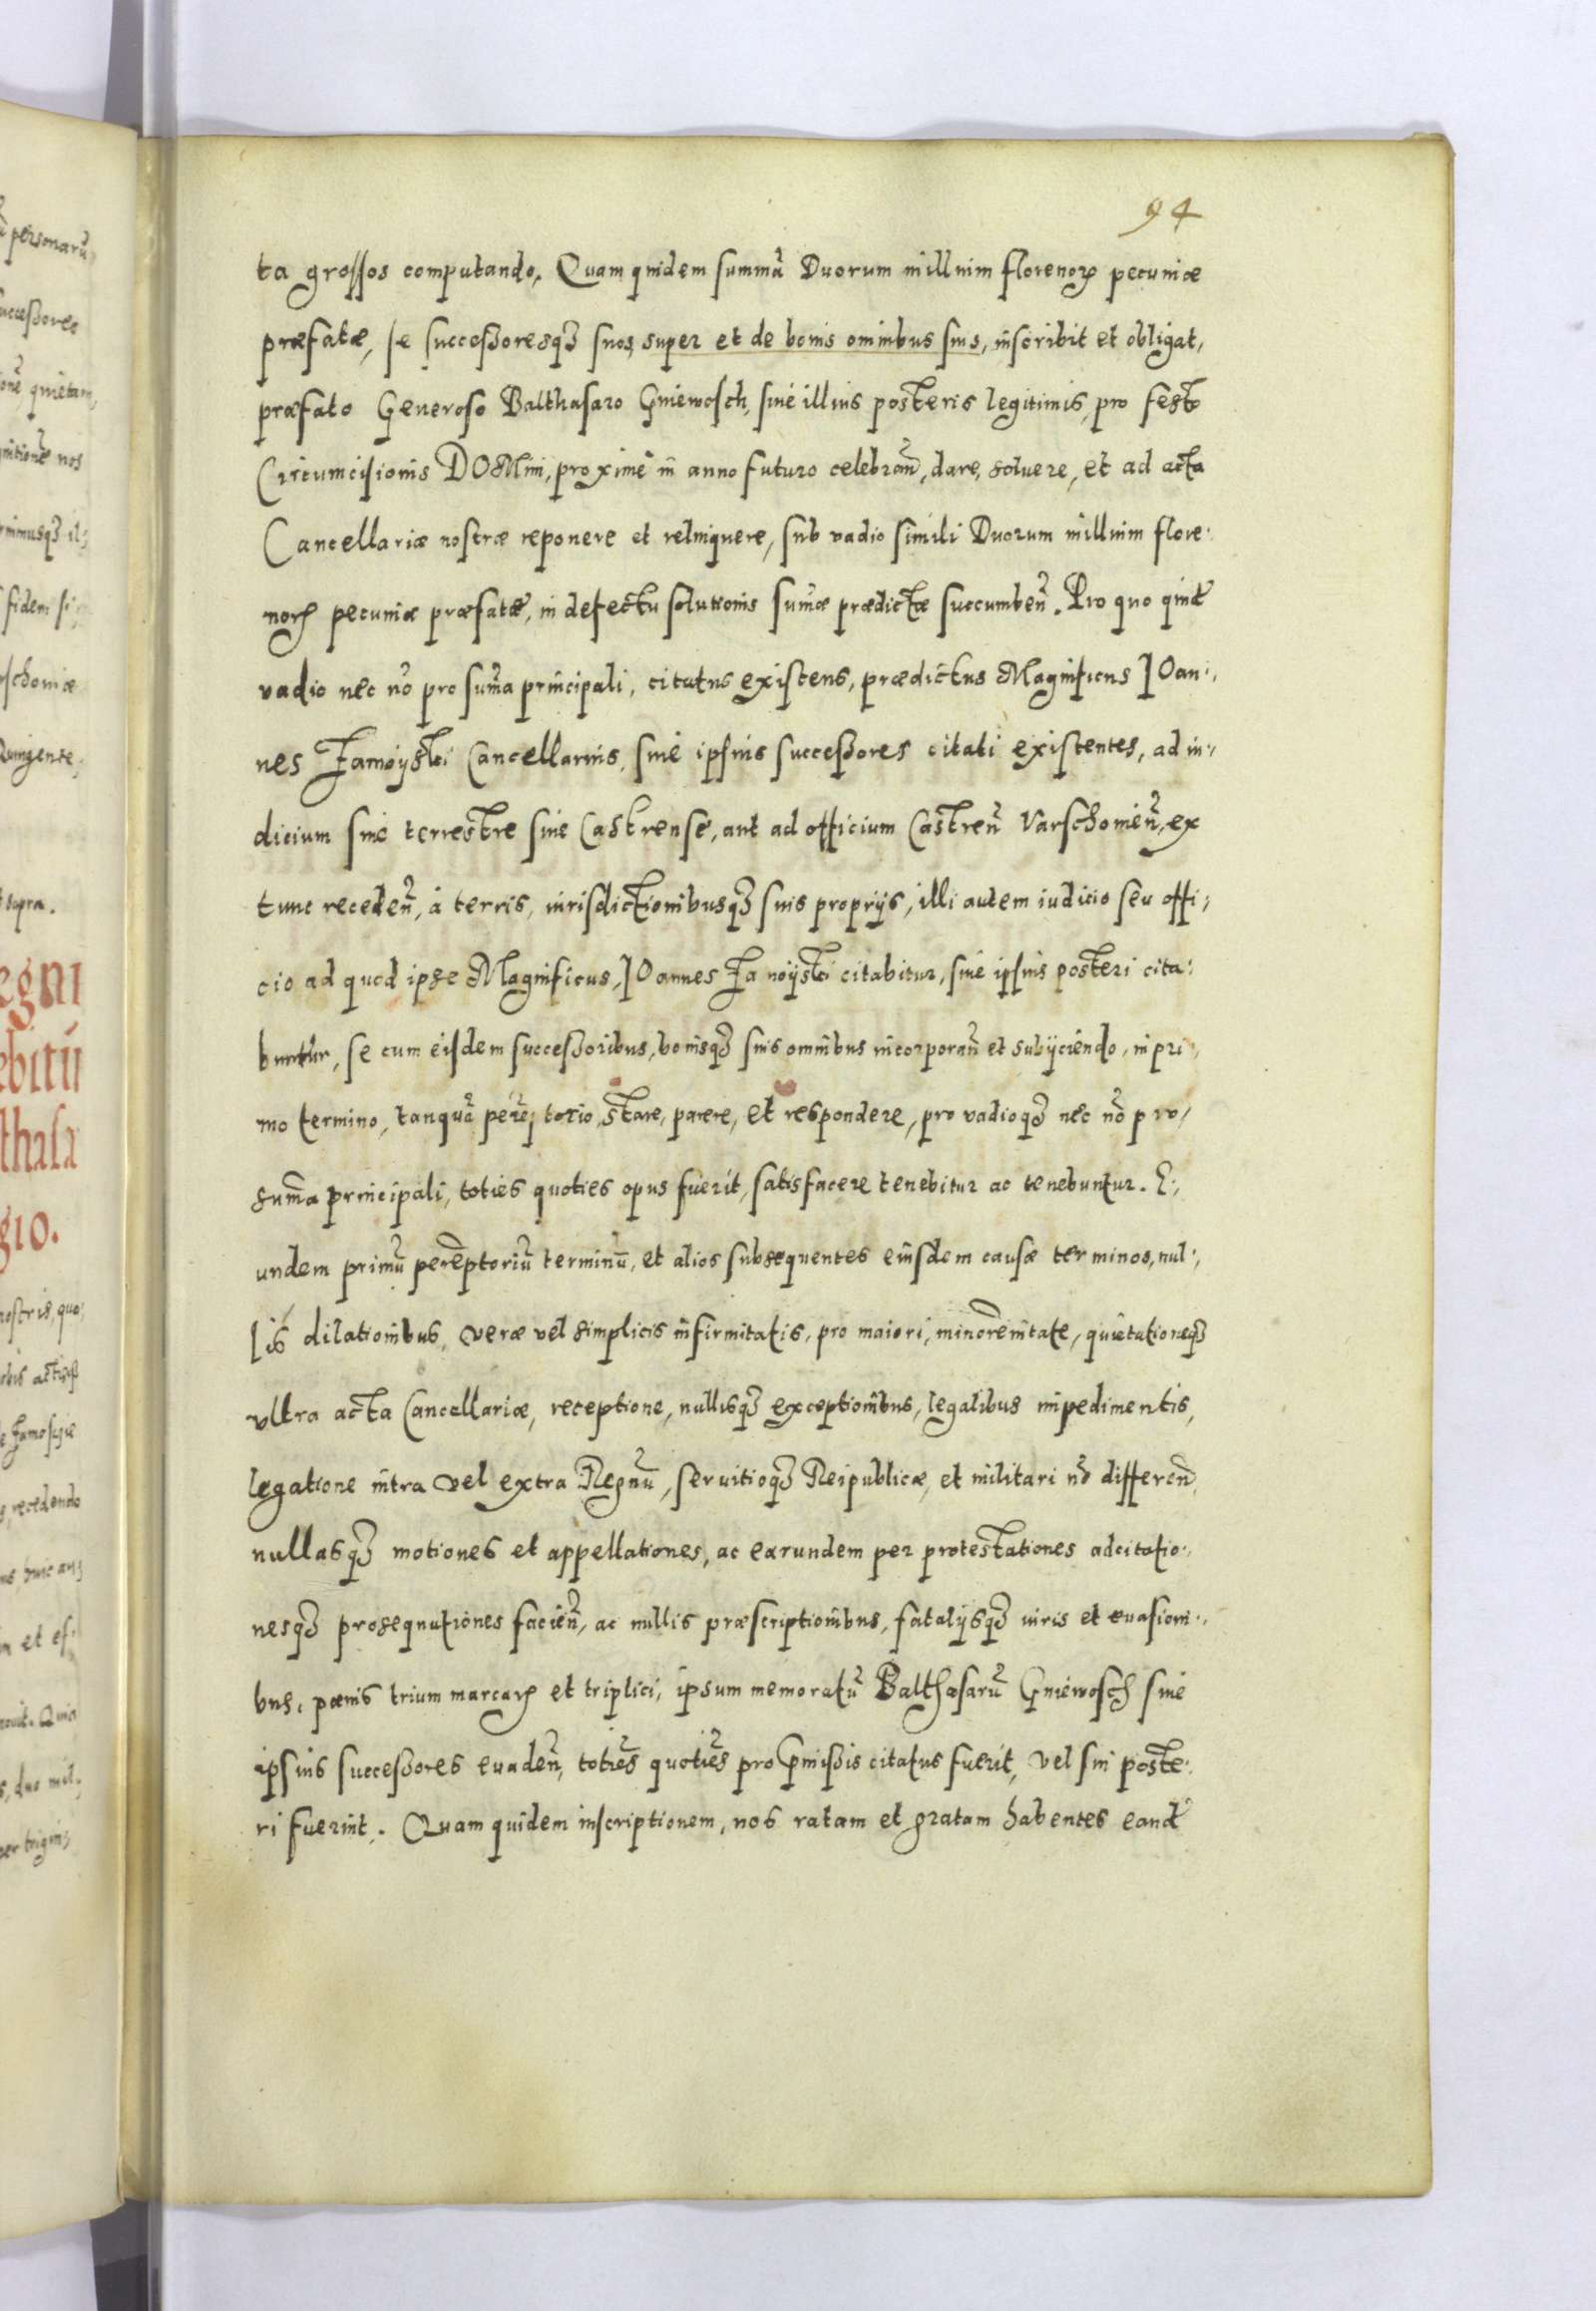 94
ta grossos computando. Quam quidem summã Duorum millium florenorꝝ pecuniæ
præfatæ, se successoresqꝫ suos, super et de bonis omnibus suis, inscribit et obligat,
præfato Generoso Balthasaro Gniewosch, siue illius posteris legitimis, pro festo
Circumcisionis DOMini, proximè in anno futuro celebran̄, dare, soluere, et ad acta
Cancellariæ nostræ reponere et relinquere, sub vadio simili Duorum millium flore:
norꝝ pecuniæ præfatæ, in defectu solutionis sum̄æ prædictæ succumben̄. Pro quo quid̄
vadio nec nõ pro sum̄a principali, citatus existens, prædictus Magnificus IOan:,
nes Zamoyski Cancellarius, siue ipsius successores citati existentes, ad iu:,
dicium siue terrestre siue Castrense, aut ad officium Castren̄ Varschouien̄, ex
tunc receden̄, à terris, iurisdictionibusqꝫ suis proprijs, illi autem iudicio seu offi:,
cio ad quod ipse Magnificus, IOannes Zamoyski citabitur, siue ipsius posteri cita:
buntur, se cum eisdem successoribus, bonisqꝫ suis omnibus incorporan̄ et subijciendo, in pri:,
mo termino, tanquã perẽptorio, stare, parere, et respondere, pro vadioqꝫ nec nõ pro,
sum̄a principali, toties quoties opus fuerit, satisfacere tenebitur ac tenebuntur. E:,
undem primũ perẽptoriũ terminũ, et alios subsequentes eiusdem causæ terminos, nul:,
lis dilationibus, veræ vel simplicis infirmitatis, pro maiori, minorennitate, quietationeqꝫ
vltra acta Cancellariæ, receptione, nullisqꝫ exceptionibus, legalibus impedimentis,
legatione intra vel extra Regnũ, seruitioqꝫ Reipublicæ, et militari nõ differen̄,
nullasqꝫ motiones et appellationes, ac earundem per protestationes adcitatio:,
nesqꝫ prosequutiones facien̄, ac nullis præscriptionibus, fatalijsqꝫ iuris et euasioni:,
bus, pœnis trium marcarꝝ et triplici, ipsum memoratũ Balthasarũ Gniewosch siue
ipsius successores euaden̄, toties quoties pro p̄missis citatus fuerit, vel sui poste:
ri fuerint. Quam quidem inscriptionem, nos ratam et gratam habentes eand̄